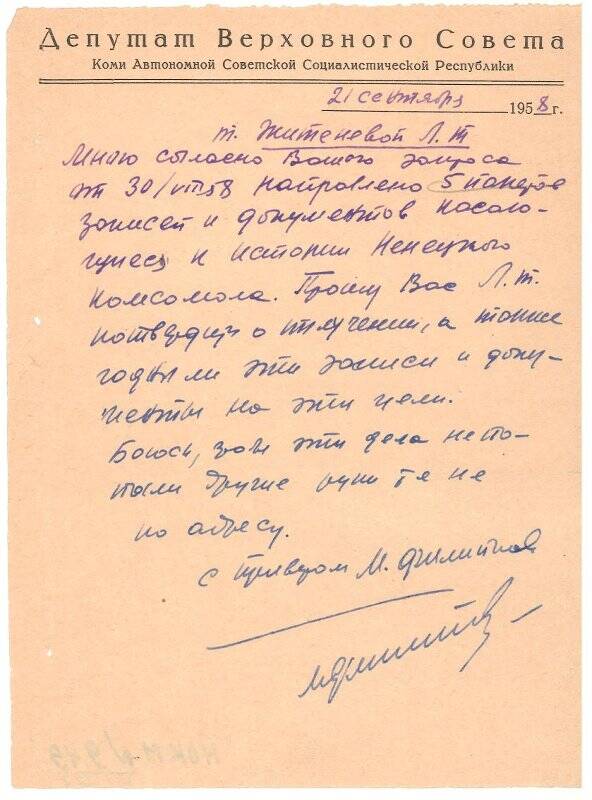 Депутат Верховного Совета
Коми Автономной Советской Социалистической Республики
21 сентября 1958 г.
т. Житеневой Л.Т
Мною согласно Вашего запроса
от 30/VIII58 направлено 5 пакетов
записей и документов касаю-
щиеся к истории Ненецкого
комсомола. Прошу Вас Л.Т.
потвердить о получении, а также
годны ли эти записи и доку-
менты на эти цели.
Боюсь, эти дела не по-
пали другие руки т.е не
по адресу.
с приветом М. Филиппов